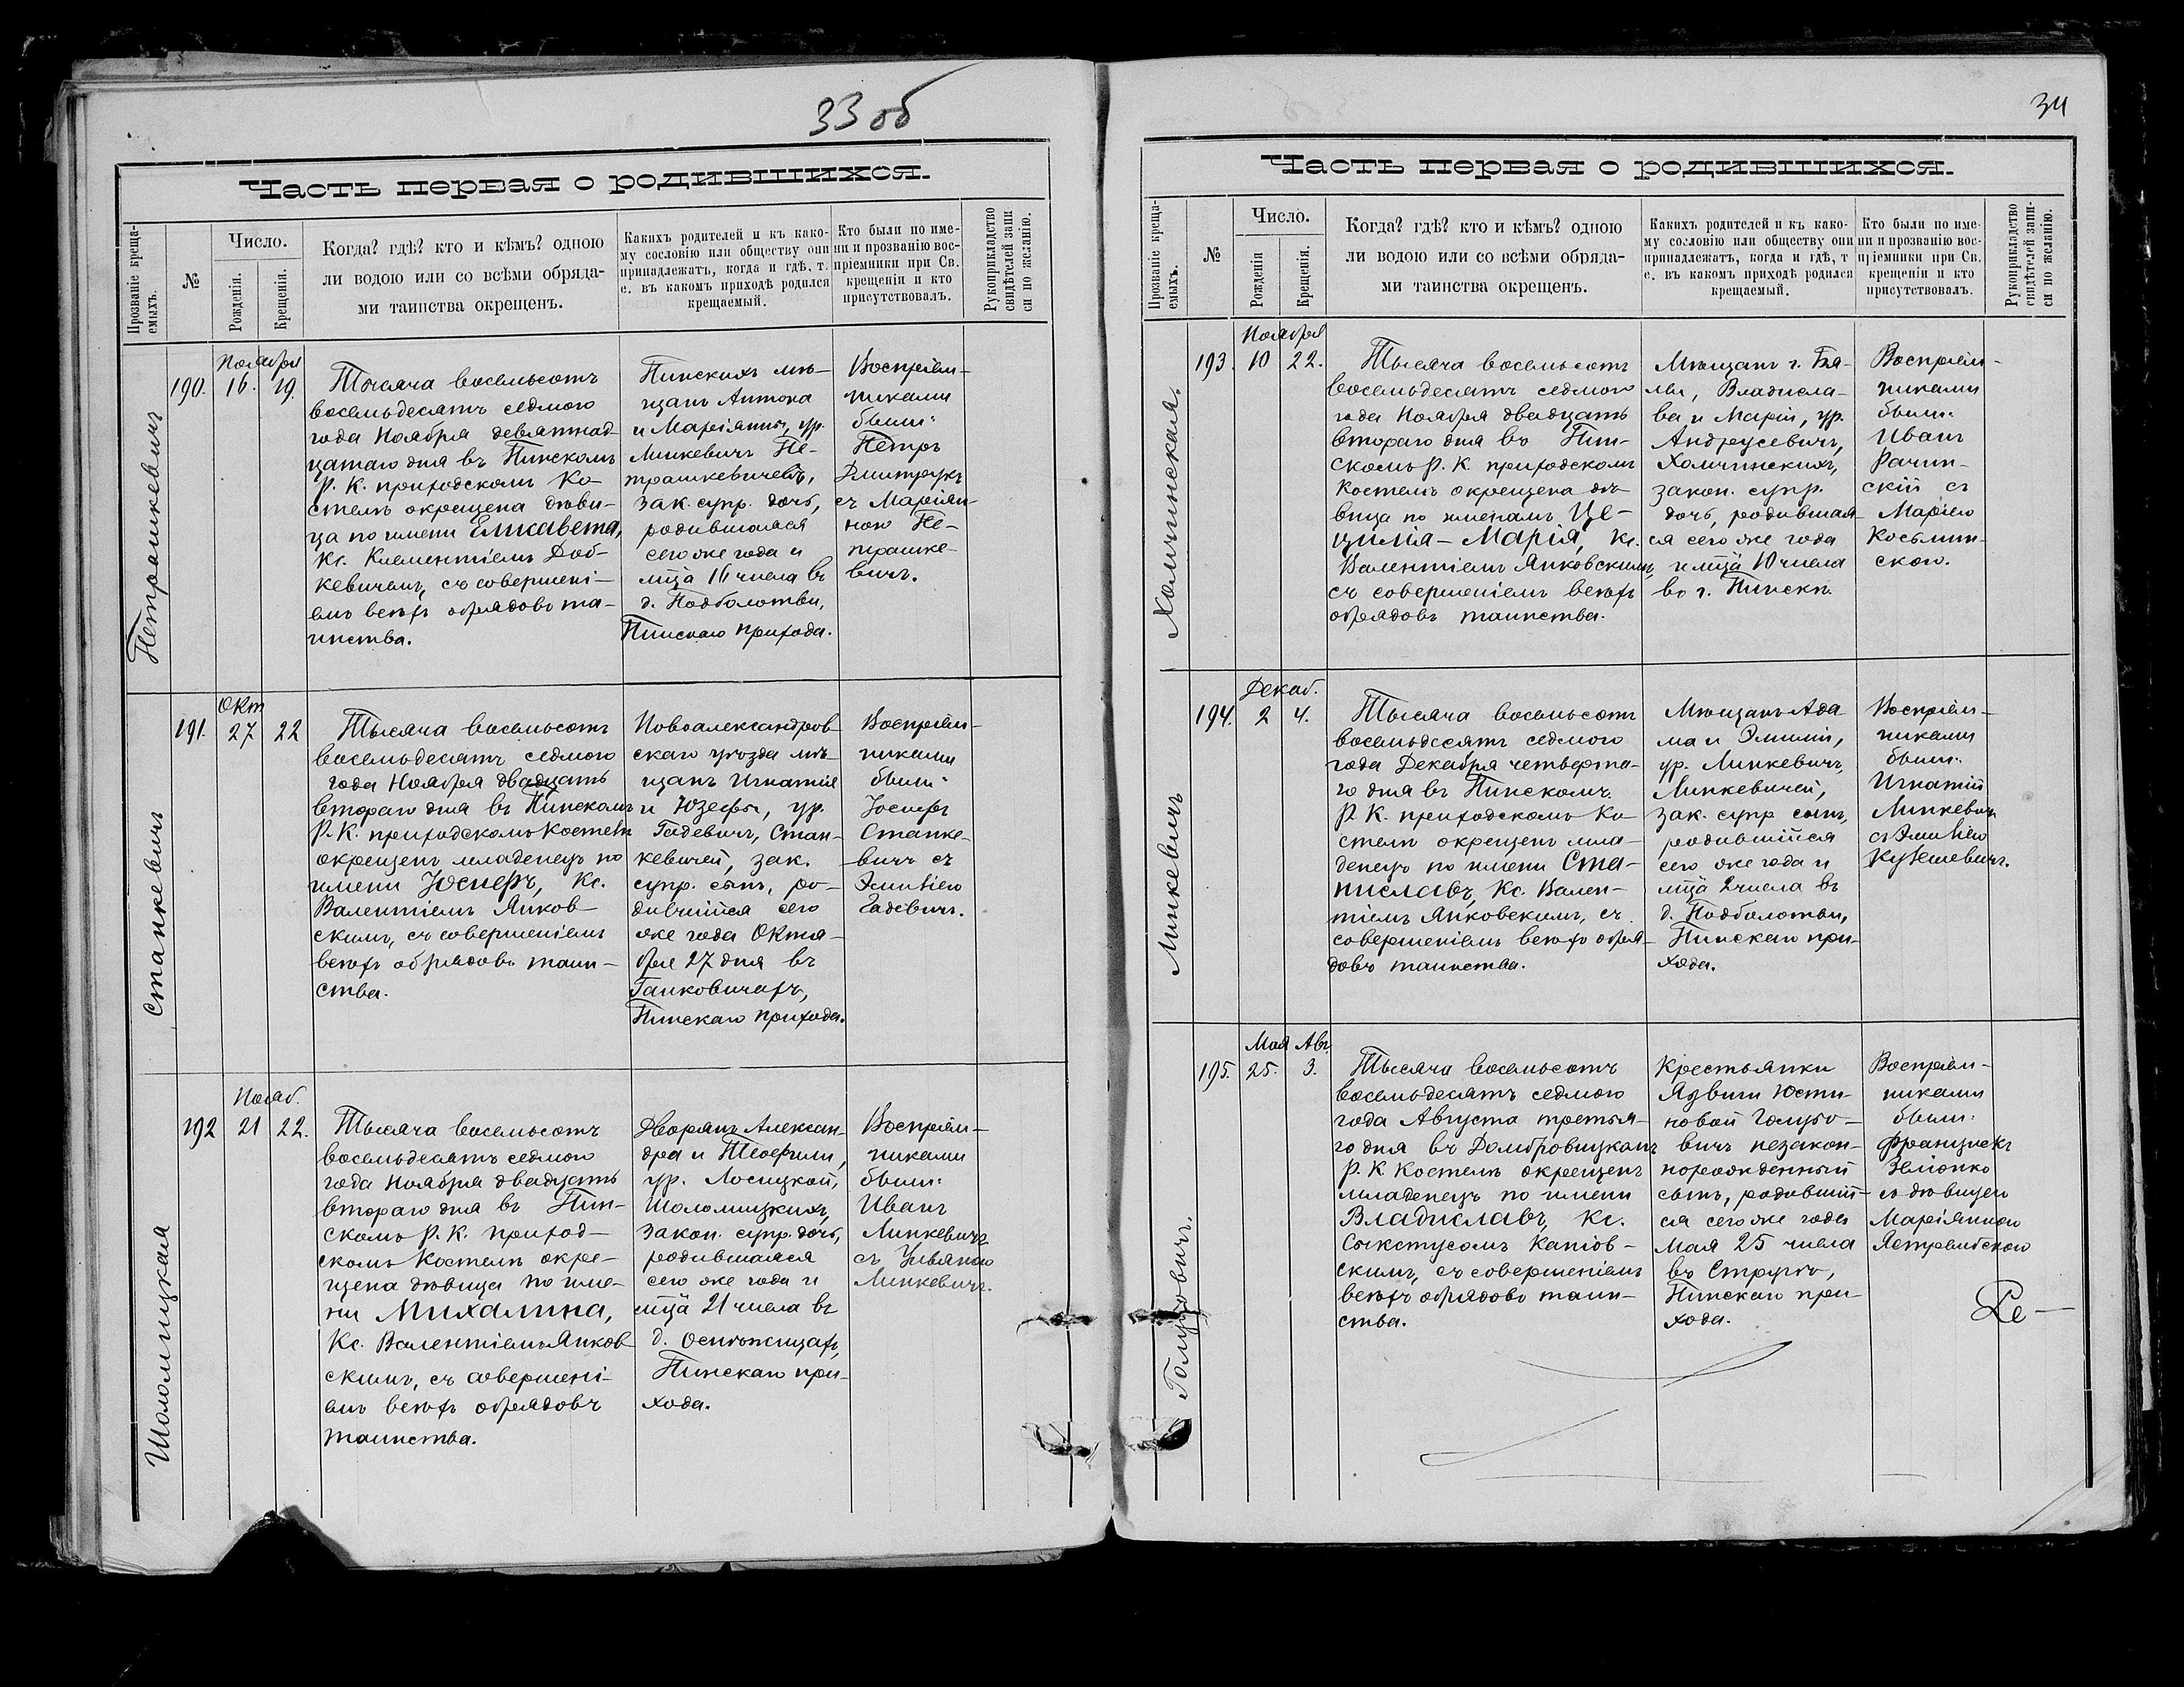 33 об
Часть первая о родившихся.
Прозваніе креща-
емыхъ.
№
Число.
Рожденія.
Крещенія.
Когда? гдѣ? кто и кѣмъ? одною
ли водою или со всѣми обряда-
ми таинства окрещенъ.
Какихъ родителей и къ како-
му сословію или обществу они
принадлежатъ, когда и гдѣ, т.
е. въ какомъ приходѣ родился
крещаемый.
Кто были по име-
ни и прозванію вос-
пріемники при Св.
крещеніи и кто
присутствовалъ.
Рукоприкладство
свидѣтелей запи
си по желанію.
Петрашкевичъ
190.
Ноября
16. 19.
Тысяча восемьсотъ
восемьдесятъ седмого
года Ноября девятнад-
цатаго дня въ Пинскомъ
Р. К. приходскомъ Ко-
стелѣ окрещена дѣви-
ца по имени Елисавета,
Кс. Климентіемъ Доб-
кевичемъ, съ совершені-
емъ всѣхъ обрядовъ та-
инства.
Пинскихъ мѣ-
щанъ Антона
и Маріанны, ур.
Линкевичъ Пе-
трашкевичевъ,
зак. супр. дочь,
родившаяся
сего же года и
мца 16 числа въ
д. Подболотьи,
Пинскаго прихода.
Воспріем-
никами
были:
Петръ
Дмитрукъ
съ Маріан-
ною Пе-
трашке-
вичъ.
Станкевичъ
191.
Окт
27 22
Тысяча восемьсотъ
восемьдесятъ седмого
года Ноября двадцать
втораго дня въ Пинскомъ
Р. К. приходскомъ Костелѣ
окрещенъ младенецъ по
имени Юсиферъ, Кс.
Валентіемъ Янков-
скимъ, съ совершеніемъ
всѣхъ обрядовъ таин-
ства.
Новоалександров-
скаго уѣзда мѣ-
щанъ Игнатія
и Юзефы, ур.
Гадевичъ, Стан-
кевичей, зак.
супр. сынъ, ро-
дившійся сего
же года Октя-
бря 27 дня въ
Ганковичахъ,
Пинскаго прихода.
Воспріем-
никами
были:
Іосифъ
Станке-
вичъ съ
Эмиліею
Гадевичъ.
Шоломицкая
192
Нояб.
21 22.
Тысяча восемьсотъ
восемьдесятъ седмого
года Ноября двадцать
втораго дня въ Пин-
скомъ Р. К. приход-
скомъ Костелѣ окре-
щена дѣвица по име-
ни Михалина,
Кс. Валентіемъ Янков-
скимъ, съ совершені-
емъ всѣхъ обрядовъ
таинства.
Дворянъ Алексан-
дра и Теофили,
ур. Лосицкой,
Шоломицкихъ,
закон. супр. дочь,
родившаяся
сего же года и
мца 21 числа въ
д. Оснѣжицахъ,
Пинскаго при-
хода.
Воспріем-
никами
были:
Иванъ
Линкевичъ
съ Ульяною
Линкевичъ.
34
Часть первая о родившихся.
Прозваніе креща-
емыхъ.
№
Число.
Рожденія
Крещенія.
Когда? гдѣ? кто и кѣмъ? одною
ли водою или со всѣми обряда-
ми таинства окрещенъ.
Какихъ родителей и къ како-
му сословію или обществу они
принадлежатъ, когда и гдѣ, т
е. въ какомъ приходѣ родился
крещаемый.
Кто были по име-
ни и прозванію вос-
пріемники при Св.
крещеніи и кто
присутствовалъ.
Рукоприкладство
свидѣтелей запи-
си по желанію.
Холчинская.
193.
Ноября
10 22.
Тысяча восемьсотъ
восемьдесятъ седмого
года Ноября двадцать
втораго дня въ Пин-
скомъ Р. К. приходскомъ
Костелѣ окрещена дѣ-
вица по именамъ Це-
цилія-Марія, Кс.
Валентіемъ Янковскимъ,
съ совершеніемъ всѣхъ
обрядовъ таинства.
Мѣщанъ г. Бя-
лы, Владисла-
ва и Маріи, ур.
Андрусевичъ,
Холчинскихъ,
закон. супр.
дочь, родившая-
ся сего же года
и мца 10 числа
въ г. Пинскѣ.
Воспріем-
никами
были:
Иванъ
Рачин-
скій съ
Маріею
Косьмин-
скою.
Линкевичъ
194.
Декаб.
2 4.
Тысяча восемьсотъ
восемьдесятъ седмого
года Декабря четверта-
го дня въ Пинскомъ
Р. К. приходскомъ Ко-
стелѣ окрещенъ мла-
денецъ по имени Ста-
ниславъ, Кс. Вален-
тіемъ Янковскимъ, съ
совершеніемъ всѣхъ обря-
довъ таинства.
Мѣщанъ Ада
ма и Эмиліи,
ур. Линкевичъ,
Линкевичей,
зак. супр сынъ,
родившійся
сего же года и
мца 2 числа въ
д. Подболотьи,
Пинскаго при-
хода.
Воспріем-
никами
были:
Игнатій
Линкевичъ
съ Эмиліею
Кулешевичъ.
Голубовичъ.
195.
Мая Авг.
25. 3.
Тысяча восемьсотъ
восемьдесятъ седмого
года Августа третья-
го дня въ Домбровицкомъ
Р. К Костелѣ окрещенъ
младенецъ по имени
Владиславъ, Кс.
Сикстусомъ Каніов-
скимъ, съ совершеніемъ
всѣхъ обрядовъ таин-
ства.
Крестьянки
Ядвиги Юсти-
новой Голубо-
вичъ незакон-
норожденный
сынъ, родившій-
ся сего же года
Мая 25 числа
въ Стругѣ,
Пинскаго при-
хода.
Воспріем-
никами
были:
Францискъ
Зеліонко
съ дѣвицею
Маріанною
Ястрембскою